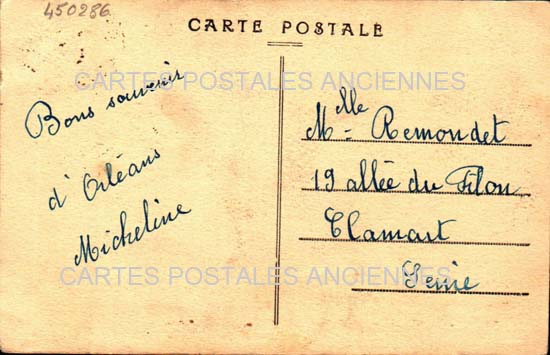 450286
CARTE POSTALE
CARTES POSTALES ANCIENNES
Bons souvenir
d'Orléans
Micheline
Mlle Remondet
19 allée du Filon
Clamart
Seine
CARTES POSTALES ANCIENNES